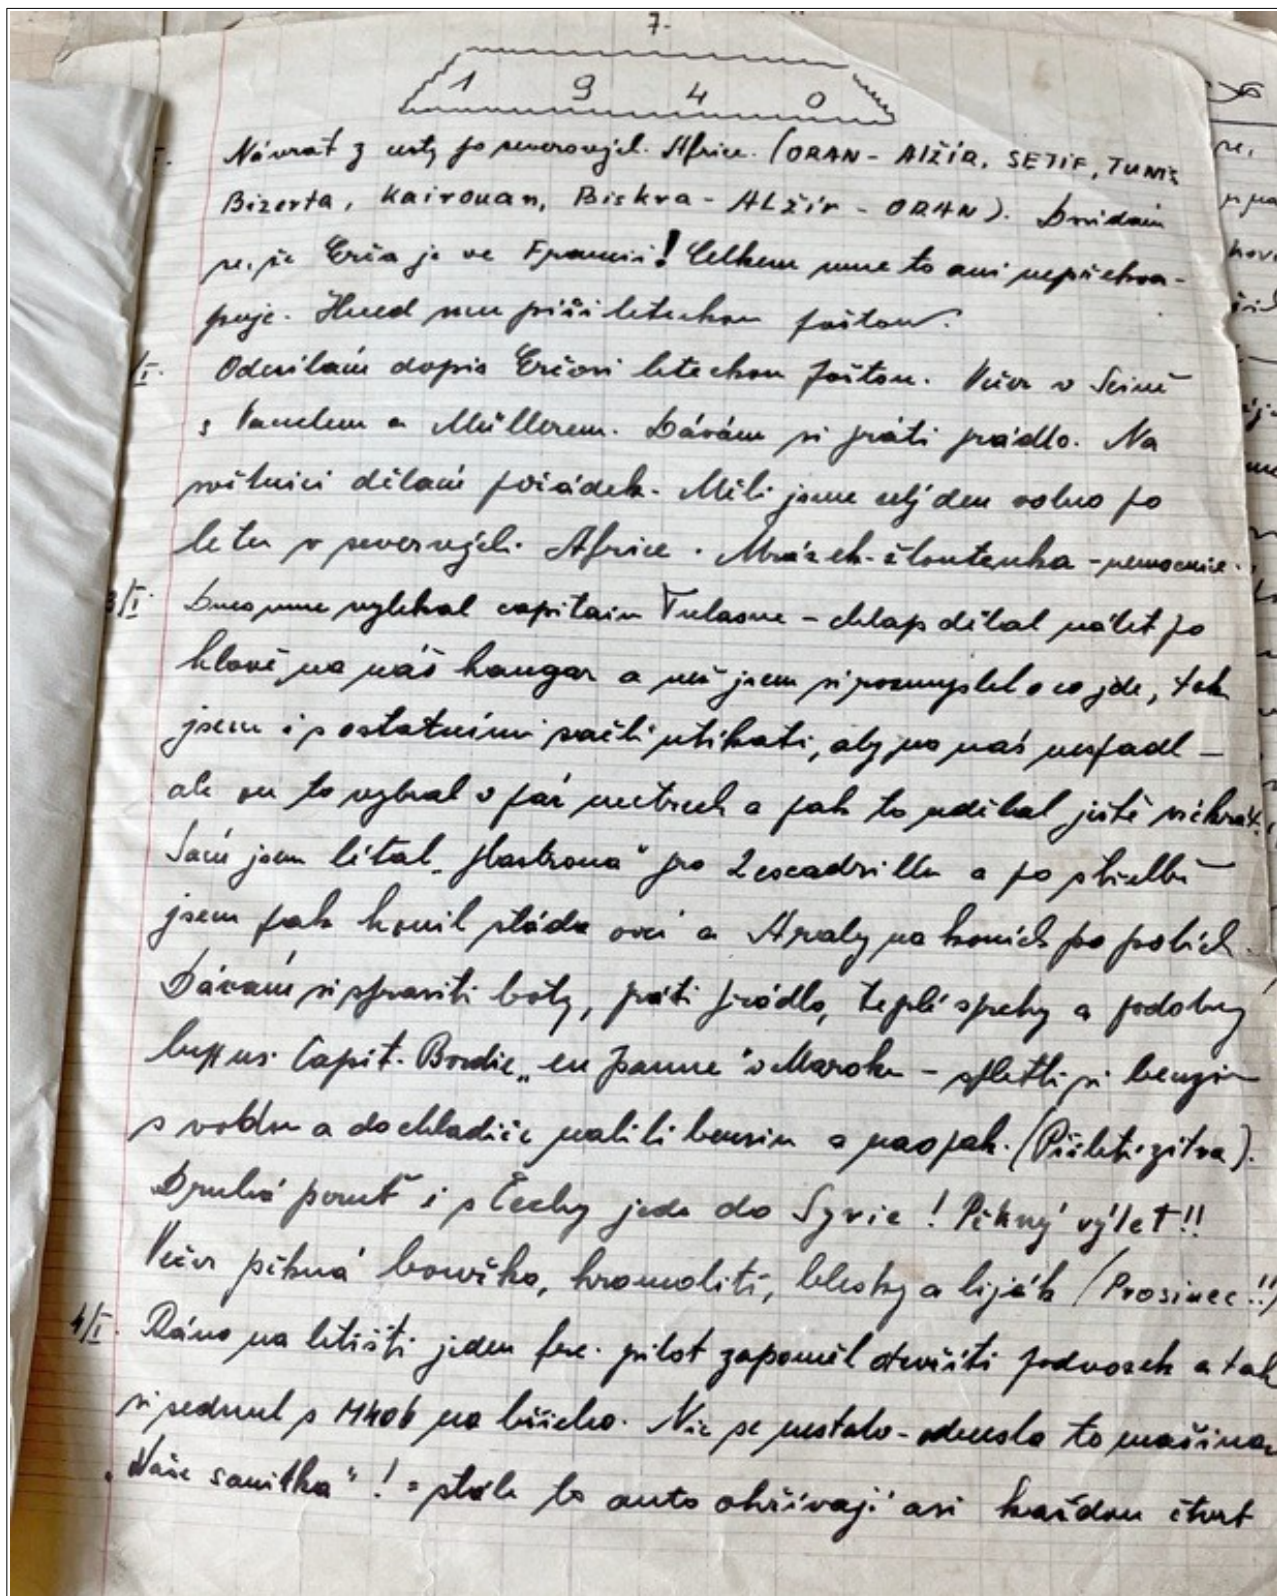 7.
1 9 4 0
Návrat z cesty po severových. Africe. (ORAN - Alžír, SETIF, TUNIS
Bizerta, Kairouan, Biskra - ALžír - ORAN). Dovídám
se, že Erža je ve Francii! Celkem mne to ani nepřekva-
puje. Hned mu píši leteckou poštou.
I. Odesílám dopis Eržovi leteckou poštou. Večer v Seině
s Vanclem a Müllerem. Dávám si práti prádlo. Na
světnici dělám pořádek. Měli jsme celý den volno po
letu v severových. Africe. Mrázek - žloutenka - nemocnice.
3/I. Dnes mne vylekal capitain Tulasne - chlap dělal nálet po
hlavě na náš hangar a než jsem si rozmyslel o co jde, tak
jsem i s ostatními začli utíkati, aby na nás nespadl -
ale on to vybral v pár metrech a pak to udělal ještě několikrát.
Sám jsem lítal "plastrona" pro 2 escadrillu a po střelbě
jsem pak honil stáda ovcí a Araby na koních po polích.
Dávám si spraviti boty, práti prádlo, teplé sprchy a podobný
luxus. Capit. Bordie "en panne" v Maroku - spletli si benzin
s vodou a do chladiče nalili bensin a naopak. (Přiletí zítra).
Druhá peruť i s Čechy jede do Syrie! Pěkný výlet!!
Večer pěkná bouřka, hromobití, blesky a liják (Prosinec!!)
4/I. Ráno na letišti jeden frc. pilot zapomněl otevříti podvozek a tak
si sednul s M406 na břicho. Nic se nestalo - odnesla to mašina.
"Naše sanitka"! = stále to auto ohřívají asi každou čtvrt